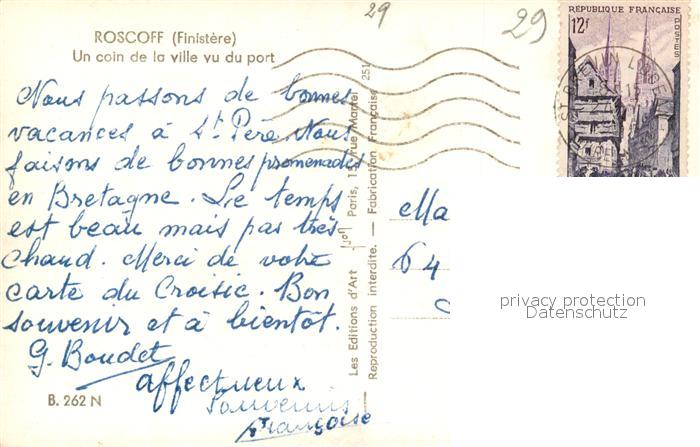 29
29
ROSCOFF (Finistère)
Un coin de la ville vu du port
RÉPUBLIQUE FRANÇAISE
12f
POSTES
Nous passons de bonnes
vacances à St Père. Nous
faisons de bonnes promenades
en Bretagne. Le temps
est beau mais pas très
chaud. Merci de votre
carte du Croisic. Bon
souvenir et à bientôt.
G. Boudet
affectueux
souvenirs
Françoise
B. 262 N
Les Editions d'Art Paris, 15, rue Martel
Reproduction interdite. — Fabrication Française 251
Ma
64
privacy protection
Datenschutz